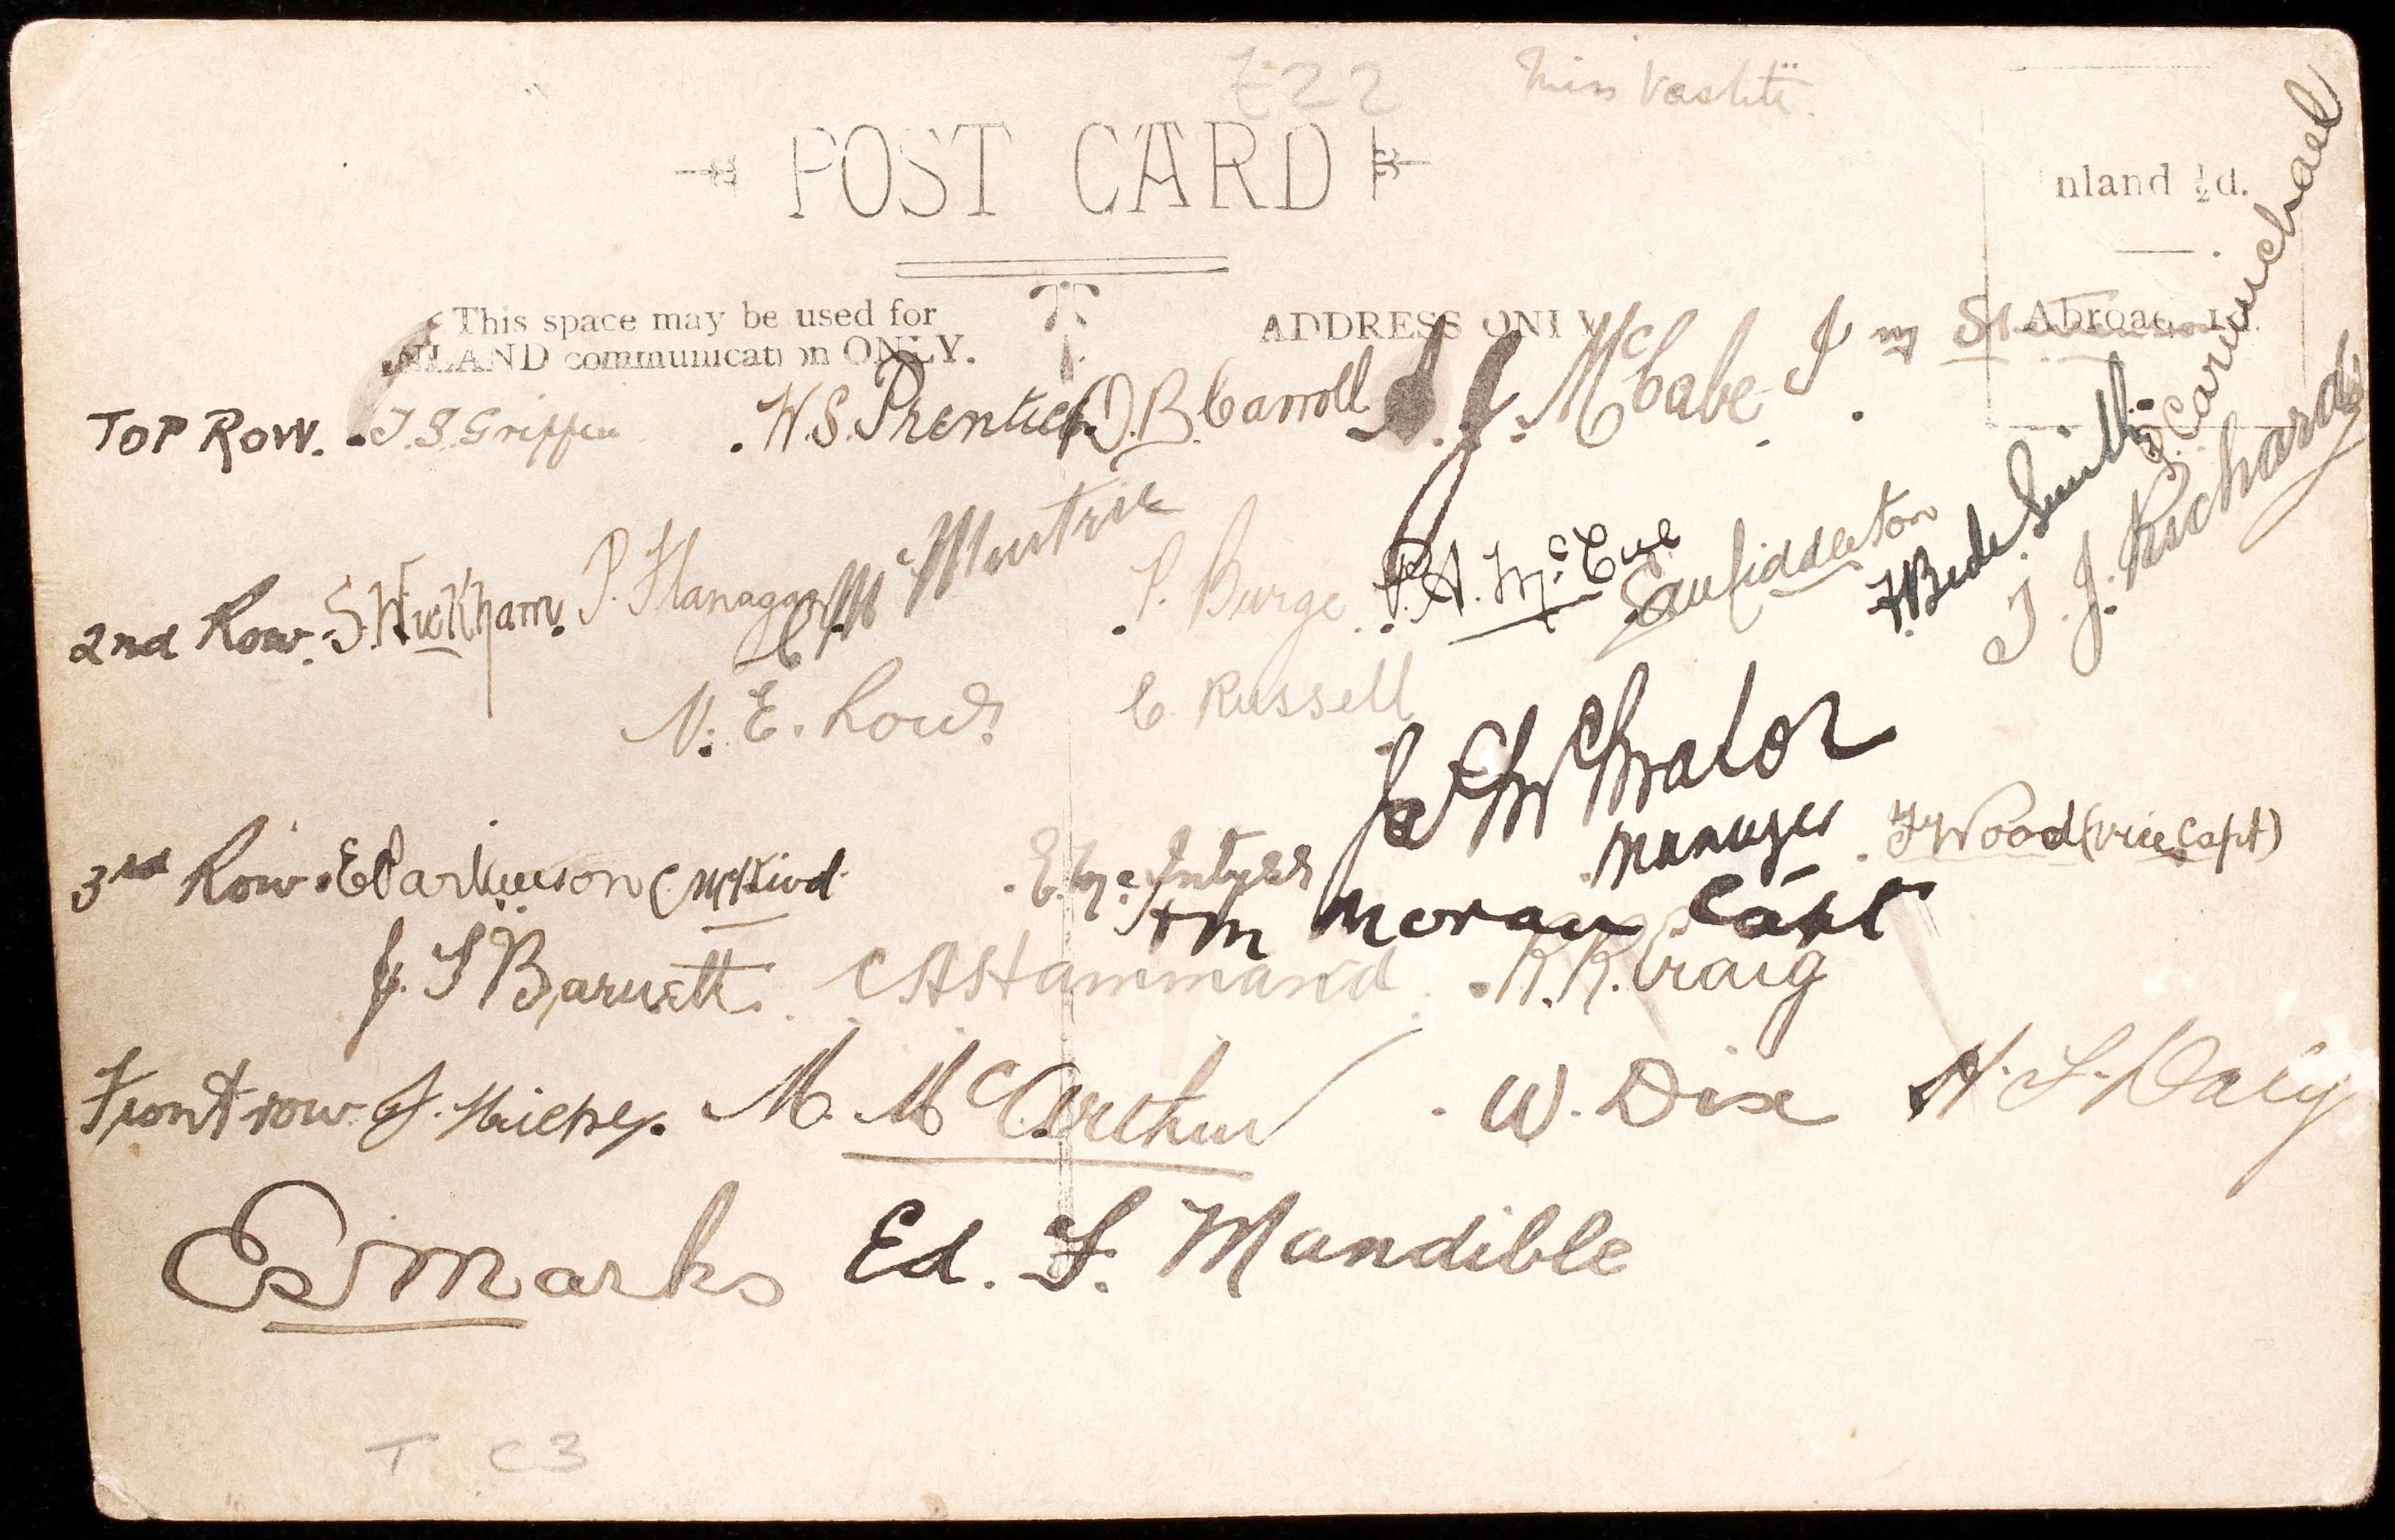 £22 Miss Vashti
POST CARD
nland ½d.
This space may be used for
INLAND communication ONLY.
ADDRESS ONLY
Abroad 1d.
TOP ROW. J.S. Griffen W.S. Prentice D.B. Carroll A. J. McCabe J m Stevenson J. Carmichael
2nd Row. S. Wickham. P. Flanagan C McMurtrie P. Burge P.A. McCue Middleton F Bede Smith T. J. Richards
N. E. Row C Russell
Manager
3rd Row. E Parkinson C McKivat E. McIntyre H M Moran Capt F Wood (Vice Capt)
J. T Barnett C A Hammand K.K. Craig
Front row J. Hickey. M. McArthur W. Dix A. J. Daly
Es Marks Ed. F. Mandible
T C3